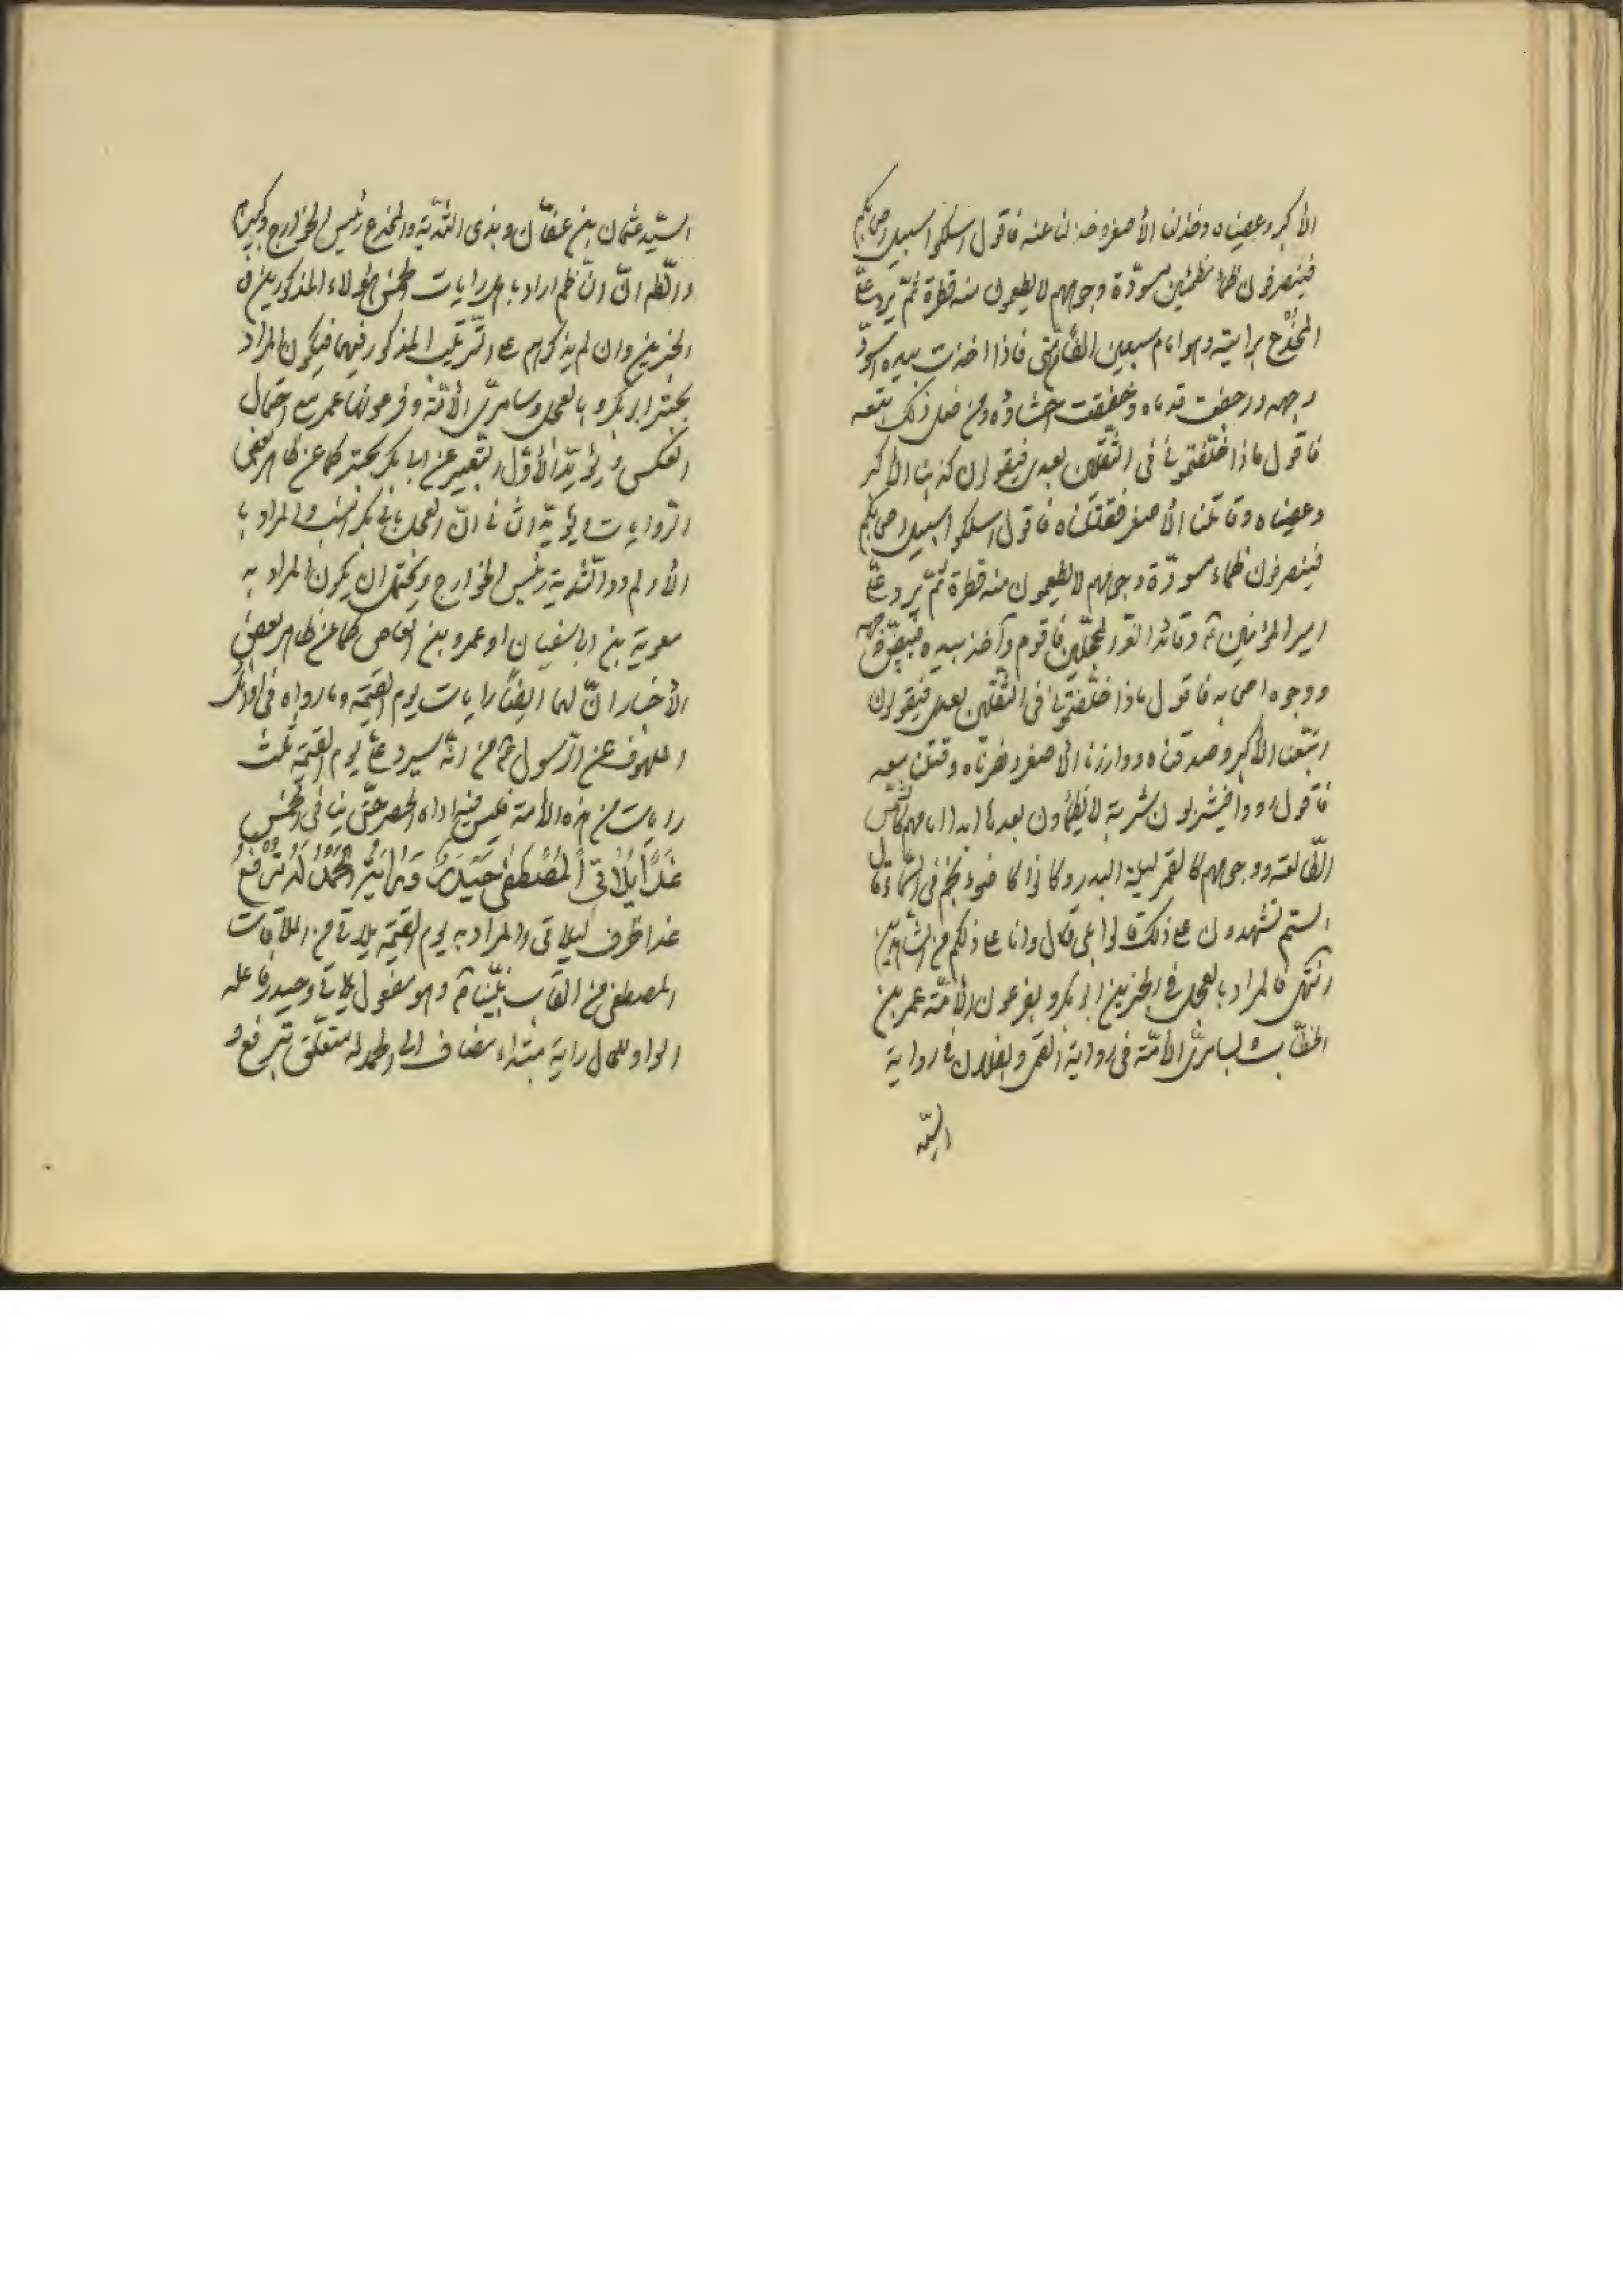 الأكبر وعصيناه وخذلنا الأصغر وخذلنا عنه فاقول اسلكوا سبيل اصحابكم
فينصرفون ظماء مظمئين مسودّة وجوههم لا يطعمون منه قطرة ثمّ يرد علىّ
المخدج برايته وهو امام سبعين الفا من امّتى فاذا اخذت بيده اسودّ
وجهه ورجفت قدماه وخفقت احشاؤه ومن فعل ذلك يتبعه
فاقول ماذا خلّفتمونى فى الثقلين بعدى فيقولون كذبنا الأكبر
وعصيناه وقاتلنا الأصغر فقتلناه فاقول اسلكوا سبيل اصحابكم
فينصرفون ظماء مسودّة وجوههم لا يطعمون منه قطرة ثمّ يرد علىّ
امير المؤمنين ع وقائد الغرّ المحجّلين فاقوم وآخذ بيده فيبيضّ وجهه
ووجوه اصحابه فاقول ماذا خلّفتمونى فى الثقلين بعدى فيقولون
اتّبعنا الأكبر وصدقناه ووازرنا الأصغر ونصرناه وقتلنا معه
فاقول رووا فيشربون شربة لا يظمأون بعدها ابدا امامهم كالشمس
الطالعة ووجوههم كالقمر ليلة البدر وكانوا كاضوء نجم فى السماء قال
الستم تشهدون على ذلك قالوا بلى قال وانا على ذلكم من الشاهدين
انتهى فالمراد بالعجل فى الخبرين ابو بكر وبفرعون الأمّة عمر بن
الخطّاب وبسامرىّ الأمّة فى رواية القمى وبفلان فى رواية
السيّد
السيّد عثمان بن عفّان وبذى الثّديّة والمخدج رئيس الخوارج وكبيرهم
والظّ انّ النّاظم اراد باهل رايات الخمس هؤلاء المذكورين فى
الخبرين وان لم يذكرهم على التّرتيب المذكور فيهما فيكون المراد
بحبتر ابو بكر وبالعجل وسامرىّ الأمّة وفرعونها عمر مع احتمال
العكس ويؤيّد الأوّل التعبير عن ابى بكر بحبتر كما عن ظاهر بعض
الرّوايات ويؤيّد الثانى انّ العجل بابى بكر انسب والمراد با
الأدلم ذو الثّدية رئيس الخوارج ويحتمل ان يكون المراد به
معوية بن ابى سفيان او عمرو بن العاص كما عن ظاهر بعض
الأخبار انّ لهما ايضا رايات يوم القيمة وما رواه فى اوائل
الملهوف عن الرّسول ص من انّه سيرد علىّ يوم القيمة ثلث
رايات من هذه الأمة فليس فيه اداة الحصر حتّى ينافى الخمس
غَدًا يُلَاقِى الْمُصْطَفَى حَيْدَرٌ وَرَايَةُ الْحَمْدِ لَهُ تُرْفَعُ
غدا ظرف ليلاقى والمراد به يوم القيمة يلاقى من الملاقات
المصطفى من القاب نبيّنا ص وهو مفعول يلاقى وحيدر فاعله
الواو للحال راية مبتداء مضاف الى الحمد له متعلّق بترفع و